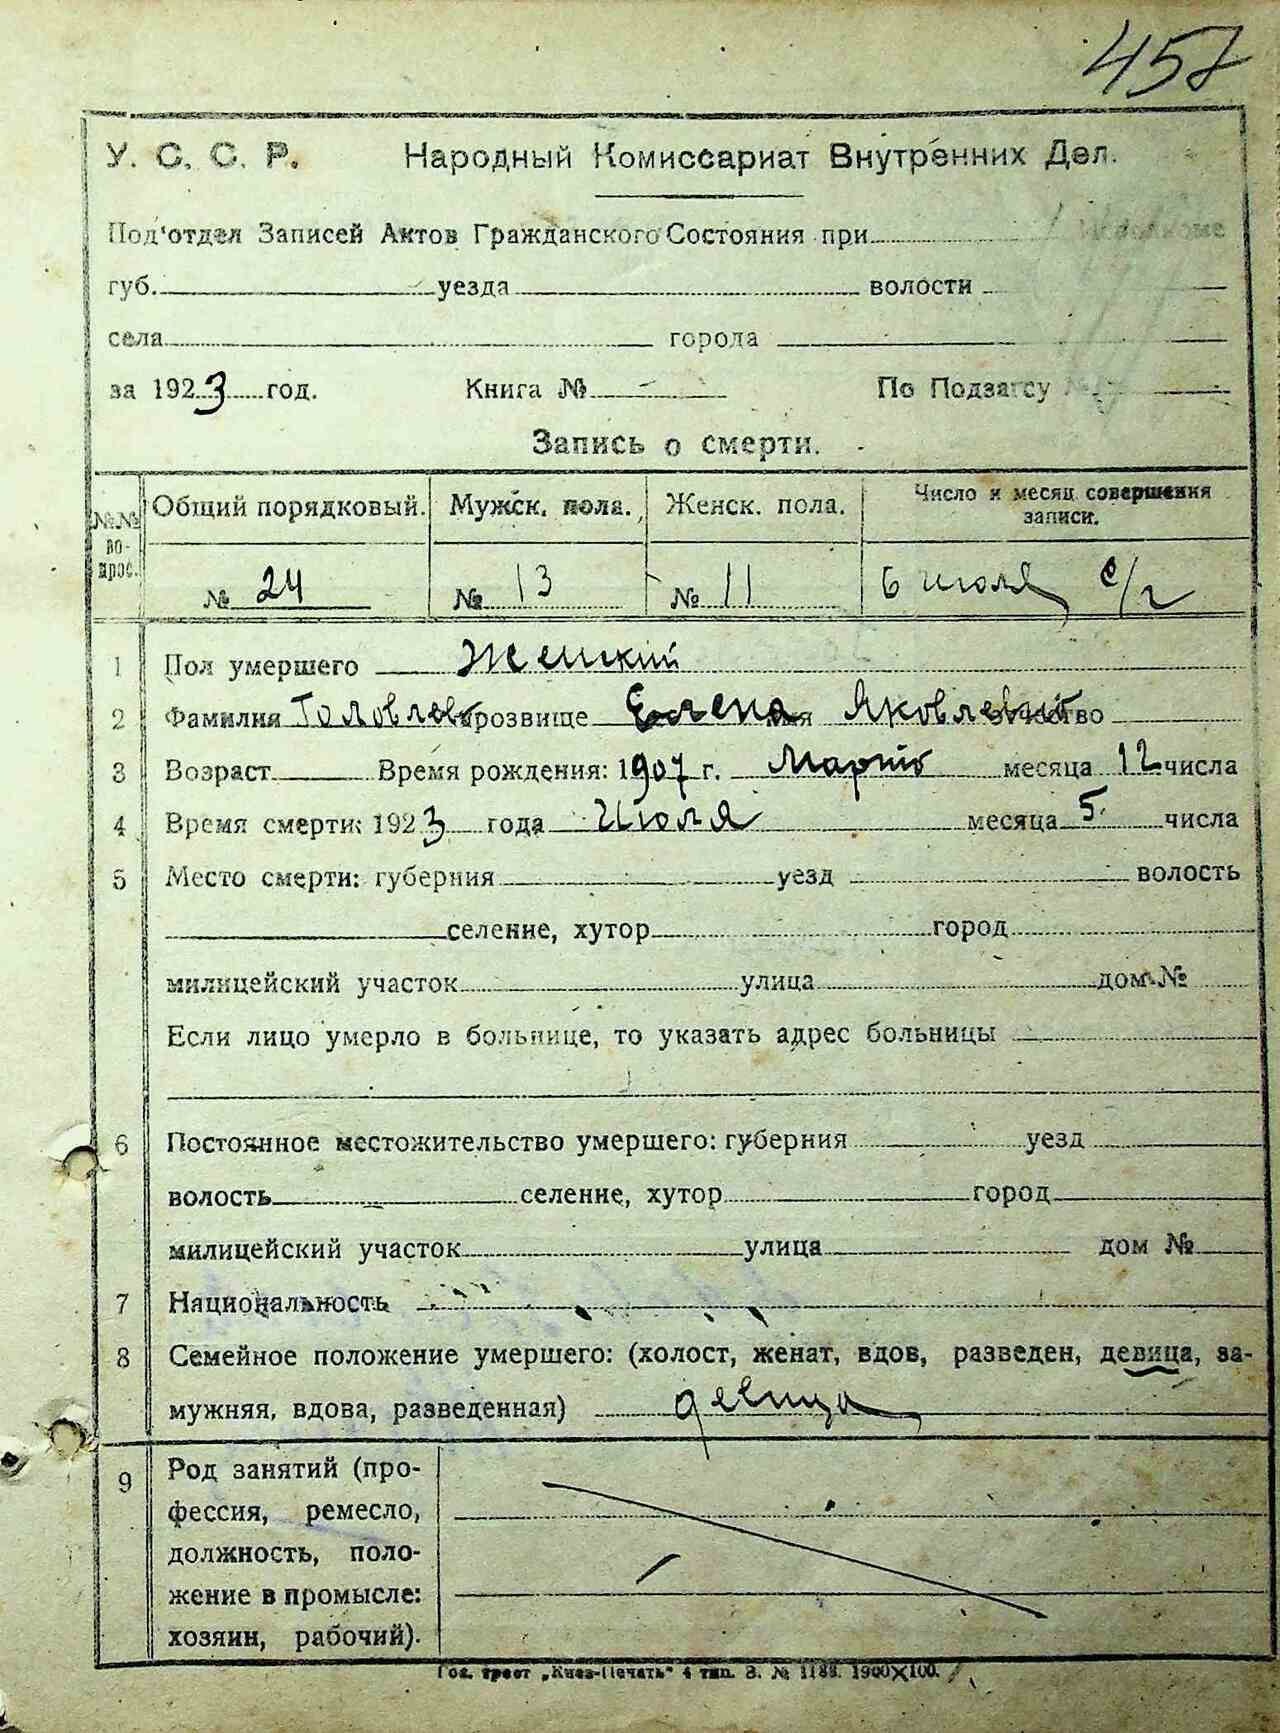 457
У. С. С. Р. Народный Комиссариат Внутренних Дел.
Под‘отдел Записей Актов Гражданского Состояния при Исполкоме
губ. уезда волости
села города
за 1923 год. Книга № По Подзагсу №
Запись о смерти.
№№ вопрос. Общий порядковый. Мужск. пола. Женск. пола. Число и месяц совершения записи.
№ 24 № 13 № 11 6 июля с/г
1 Пол умершего Женский
2 Фамилия прозвище Елена имя отчество
3 Возраст Время рождения: 1907 г. месяца 12 числа
4 Время смерти: 1923 года Июля месяца 5 числа
5 Место смерти: губерния уезд волость
селение, хутор город
милицейский участок улица дом №
Если лицо умерло в больнице, то указать адрес больницы
6 Постоянное местожительство умершего: губерния уезд
волость селение, хутор город
милицейский участок улица дом №
7 Национальность
8 Семейное положение умершего: (холост, женат, вдов, разведен, девица, за-
мужняя, вдова, разведенная) девица
9 Род занятий (про-
фессия, ремесло,
должность, поло-
жение в промысле:
хозяин, рабочий).
Гос. трест „Киев-Печать“ 4 тип. З. № 1188. 1900×100.